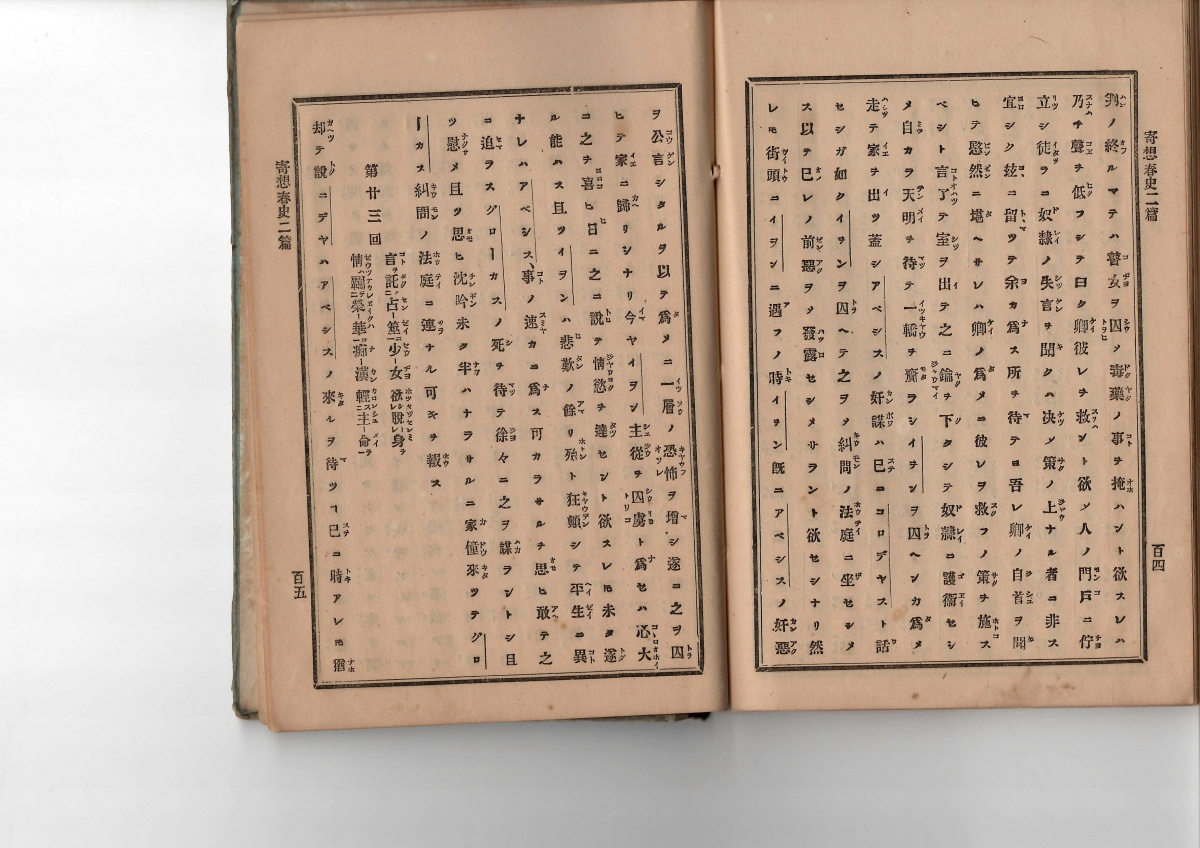 寄想春史二篇
百四
判ノ終ルマテハ瞽女ヲ囚シ毒藥ノ事ヲ掩ハント欲スレハ
乃チ聲ヲ低フシテ曰ク卿彼レヲ救ハント欲メ人ノ門戸ニ佇
立シ徒ラニ奴隷ノ失言ヲ聞クハ决メ策ノ上ナル者ニ非ス
宜シク玆ニ留ツテ余カ爲ス所ヲ待テヨ吾レ卿ノ自首ヲ聞
ヒテ愍然ニ堪ヘサレハ卿ノ爲メニ彼レヲ救フノ策ヲ施ス
ベシト言了テ室ヲ出テ之ニ鑰ヲ下タシテ奴隷ニ護衞セシ
メ自カラ天明ヲ待テ一轎ヲ齎ラシイヲンヲ囚ヘンカ爲メ
走テ家ヲ出ツ蓋シアベシスノ奸謀ハ已ニコロデヤスト話
セシガ如クイヲンヲ囚ヘテ之ヲ糾問ノ法庭ニ坐セシメ
ス以テ已レノ前惡ヲ發露セシメサラント欲セシナリ然
レモ街頭ニイヲンニ遇フノ時イヲン既ニアベシスノ奸惡
ヲ公言シタルヲ以テ爲メニ一層ノ恐怖ヲ増シ遂ニ之ヲ囚
ヒテ家ニ歸リシナリ今ヤイヲン主從ヲ囚虜ト爲セハ心大
ニ之ヲ喜ヒ日ニ之ニ説テ情慾ヲ達セント欲スレモ未タ遂
ル能ハス且ツイヲンハ悲歎ノ餘リ殆ト狂顛シテ平生ニ異
ナレハアベシス事ノ速カニ爲ス可カラサルヲ思ヒ敢テ之
ニ迫ラスグローカスノ死ヲ待テ徐々ニ之ヲ謀ヲントシ且
ツ慰メ且ツ思ヒ沈吟未タ半ハナラサルニ家僮來ツテグロ
ーカス糾問ノ法庭ニ連ナル可キヲ報ス
第廿三回
言ヲ託シ占筮ニ少女欲シ脱レント身ヲ
情ハ羈レ榮華ニ痴漢輕ス主命ヲ
却テ説ニデヤハアベシスノ來ルヲ待ツヿ已ニ時アレモ猶
寄想春史二篇
百五